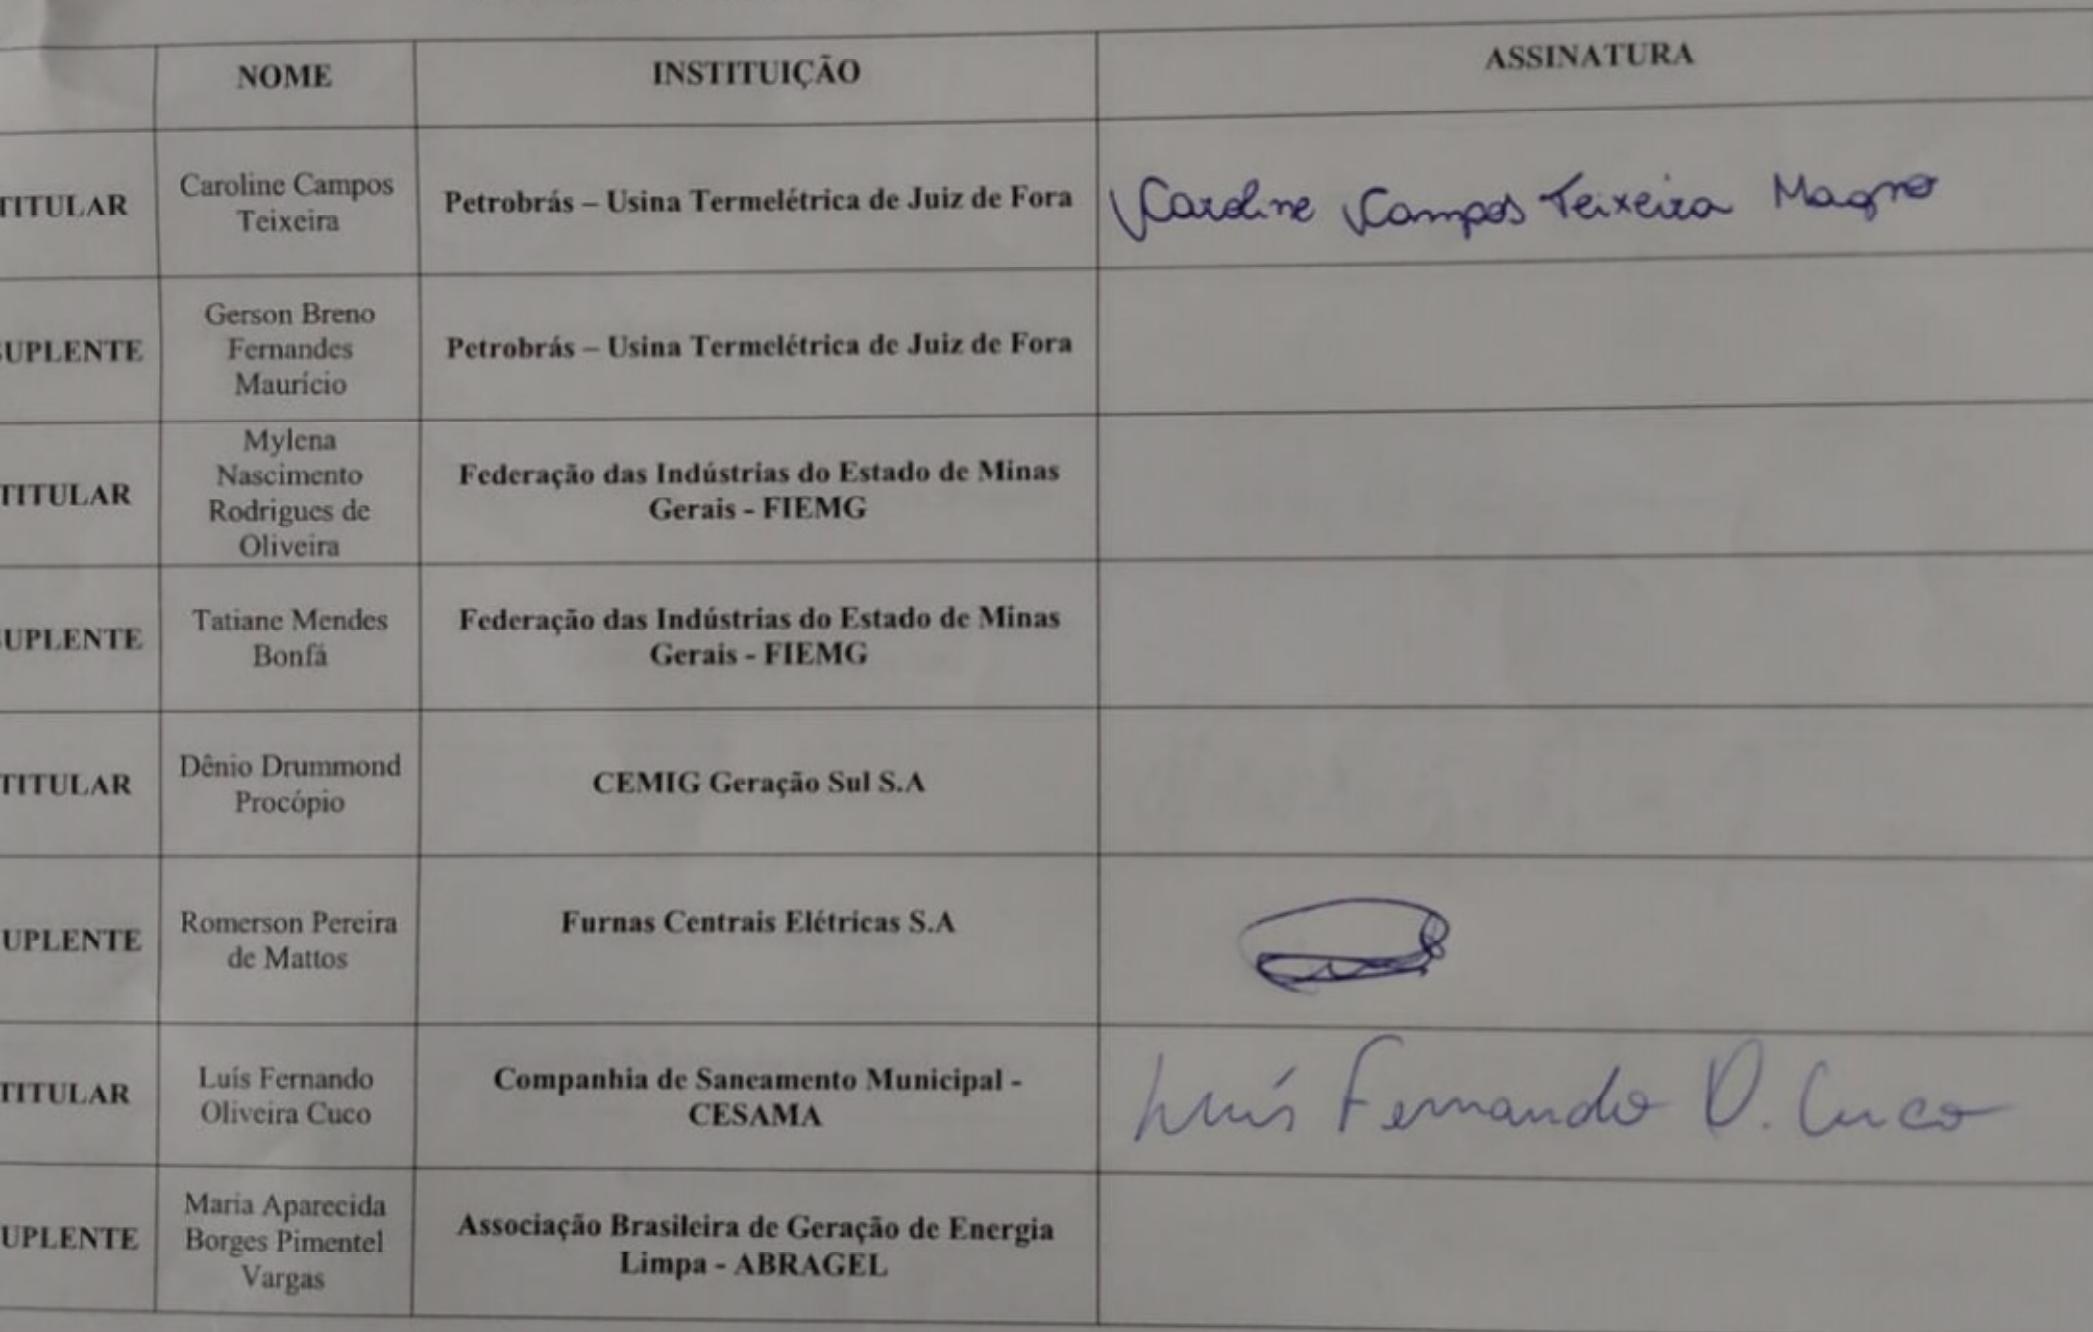 NOME
INSTITUIÇÃO
ASSINATURA
TITULAR
Caroline Campos
Teixeira
Petrobrás – Usina Termelétrica de Juiz de Fora
Caroline Campos Teixeira Magno
UPLENTE
Gerson Breno
Fernandes
Maurício
Petrobrás – Usina Termelétrica de Juiz de Fora
TITULAR
Mylena
Nascimento
Rodrigues de
Oliveira
Federação das Indústrias do Estado de Minas
Gerais - FIEMG
UPLENTE
Tatiane Mendes
Bonfá
Federação das Indústrias do Estado de Minas
Gerais - FIEMG
TITULAR
Dênio Drummond
Procópio
CEMIG Geração Sul S.A
UPLENTE
Romerson Pereira
de Mattos
Furnas Centrais Elétricas S.A
TITULAR
Luís Fernando
Oliveira Cuco
Companhia de Saneamento Municipal -
CESAMA
Luís Fernando O. Cuco
UPLENTE
Maria Aparecida
Borges Pimentel
Vargas
Associação Brasileira de Geração de Energia
Limpa - ABRAGEL